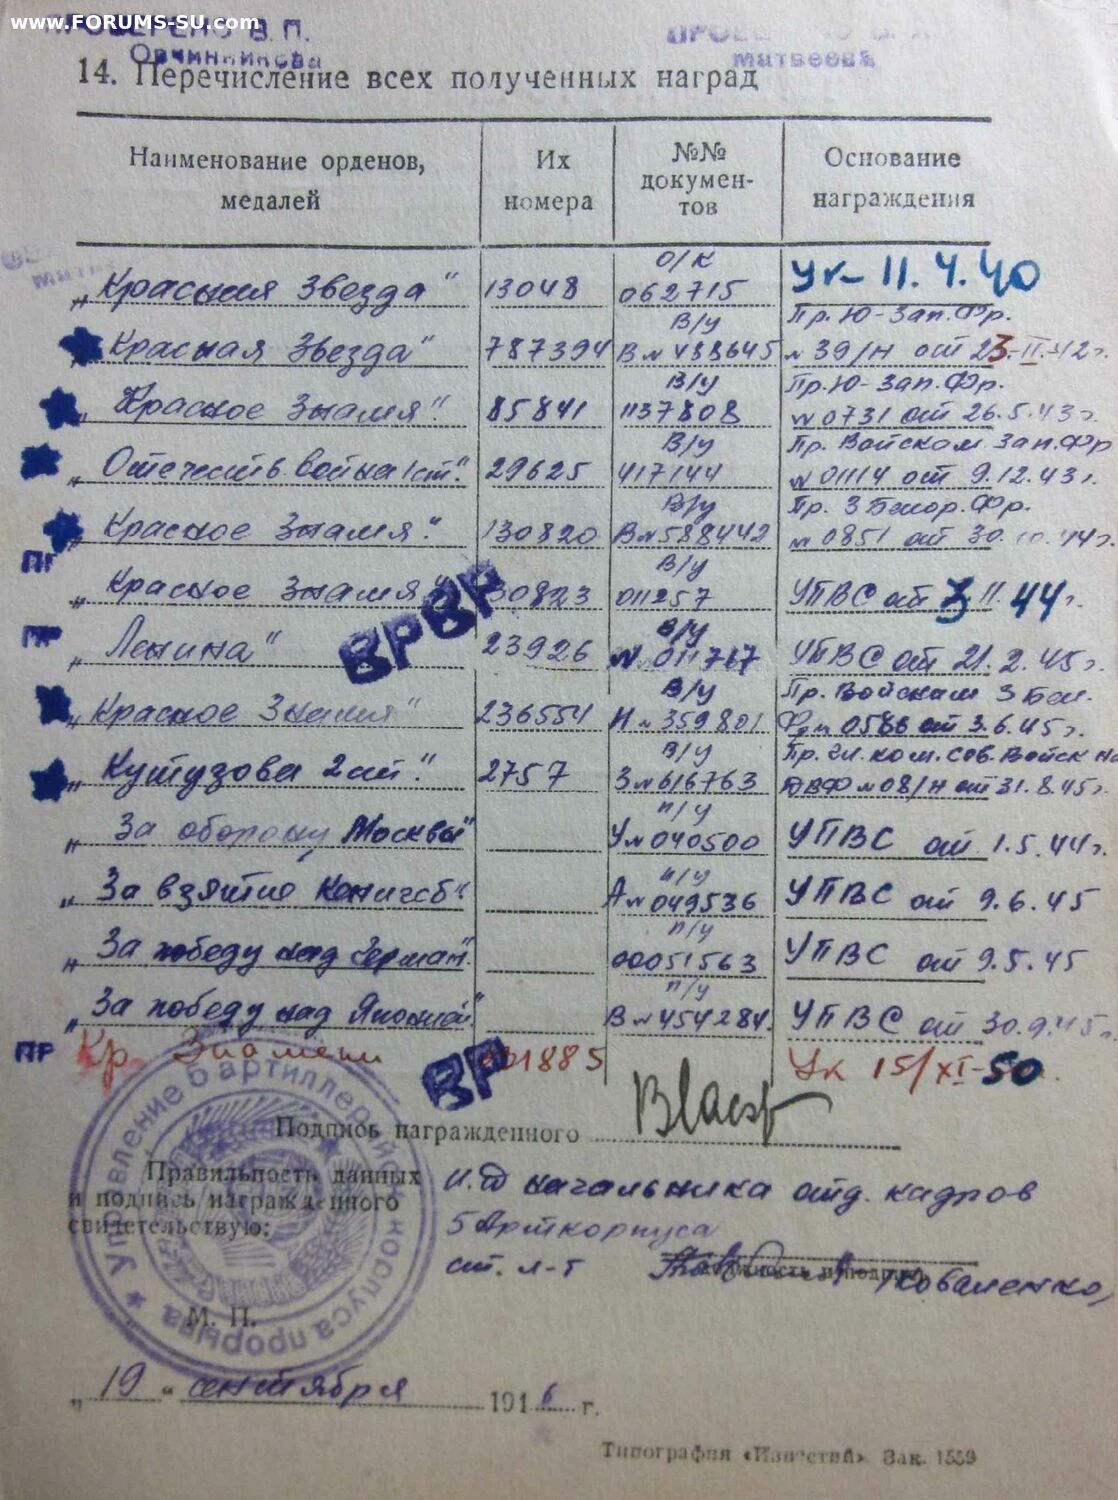 www.FORUMS-SU.com
ПРОВЕРЕНО В.П.
Овчинникова
Матвеева
14. Перечисление всех полученных наград
Наименование орденов, медалей | Их номера | №№ докумен-тов | Основание награждения
„Красная Звезда" 13048 О/К 062715 Ук- 11.4.40
„Красная Звезда" 787394 В/у В№ 488645 Пр. Ю-Зап. Фр. № 39/н от 23-II-42г.
„Красное Знамя" 85841 В/у 1137808 Пр. Ю-Зап. Фр. №0731 от 26.5.43г.
„Отечеств войны 1ст." 29625 В/у 417144 Пр. Войском Зап. Фр № 01114 от 9.12.43г.
„Красное Знамя" 130820 В/у В№588442 Пр. 3 Белор. Фр. № 0851 от 30.10.44г.
ПГ
„Красное Знамя" 30823 В/у 011257 УПВС от 3 11.44г.
ВР ВР
„Ленина" 23926 В/у № 011717 УПВС от 21.2.45г.
„Красное Знамя" 236554 В/у Н№359801 Пр. Войскам 3 Бел. Фр № 0586 от 3.6.45г.
„Кутузова 2 ст." 2757 В/у З№616763 Пр. Гл. ком. Сов. Войск на ДВФ №08/н от 31.8.45г.
„За оборону Москвы" п/у У№040500 УПВС от 1.5.44г.
„За взятие Кенигсб" п/у А№049536 УПВС от 9.6.45
„За победу над Герман." п/у 00051563 УПВС от 9.5.45
„За победу над Японией" п/у В№454284. УПВС от 30.9.45г.
ПР Кр. Знамени 1885 Ук 15/XI-50
ВР
Подпись награжденного
Правильность данных
и подпись награжденного
свидетельствую:
И.Д начальника отд. кадров
5 Арткорпуса
ст. л-т Коваленко
должность и подпись
Управление 5 артиллерийск. корпуса прорыва
М. П.
„19" сентября 1946 г.
Типография «Известий» Зак. 1559